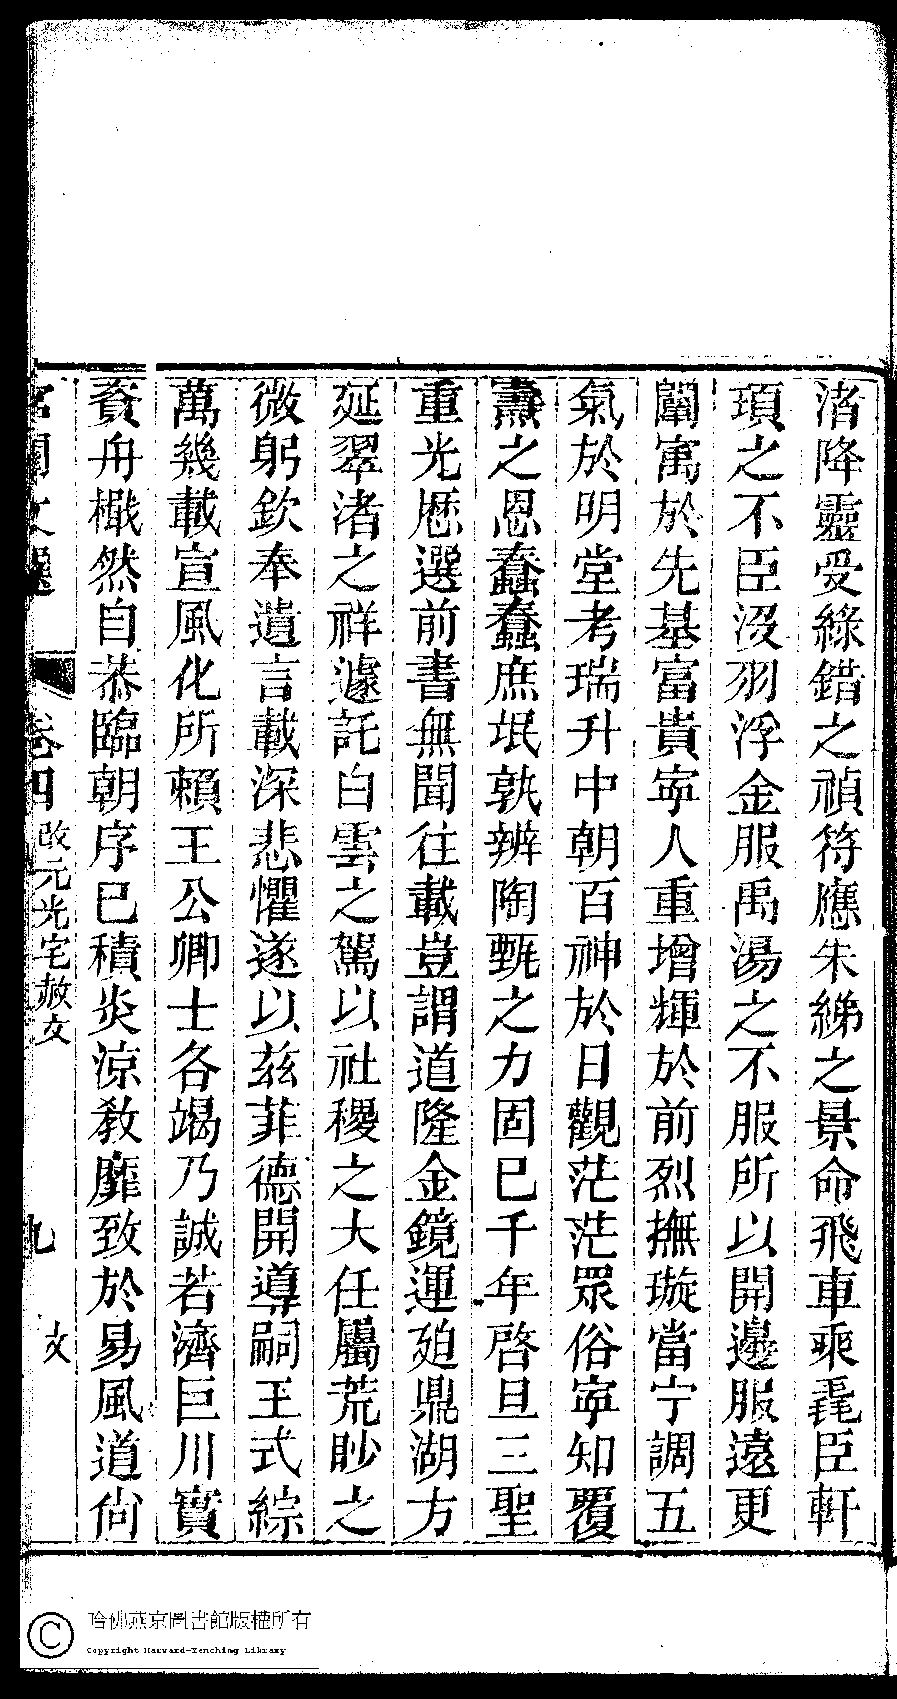 渚降靈受綠錯之禎符應朱綈之景命飛車乘毳臣軒
頊之不臣沒羽浮金服禹湯之不服所以開邊服遠更
闢寓於先基富貴寜人重增輝於前烈撫璇當宁調五
氣於明堂考瑞升中朝百神於日觀茫茫眾俗寜知覆
燾之恩蠢蠢庶氓孰辨陶甄之力固已千年啓旦三聖
重光厯選前書無聞往載豈謂道隆金鏡運廹鼎湖方
延翠渚之祥遽託白雲之駕以社稷之大任屬荒眇之
微躬欽奉遺言載深悲懼遂以兹菲德開導嗣王式綜
萬幾載宣風化所賴王公卿士各竭乃誠若濟巨川實
賚舟檝然自恭臨朝序已積炎涼教靡致於易風道尙
宮閨文選 卷四 改元光宅赦文 九 文
哈佛燕京圖書館版權所有
Copyright Harvard-Yenching Library